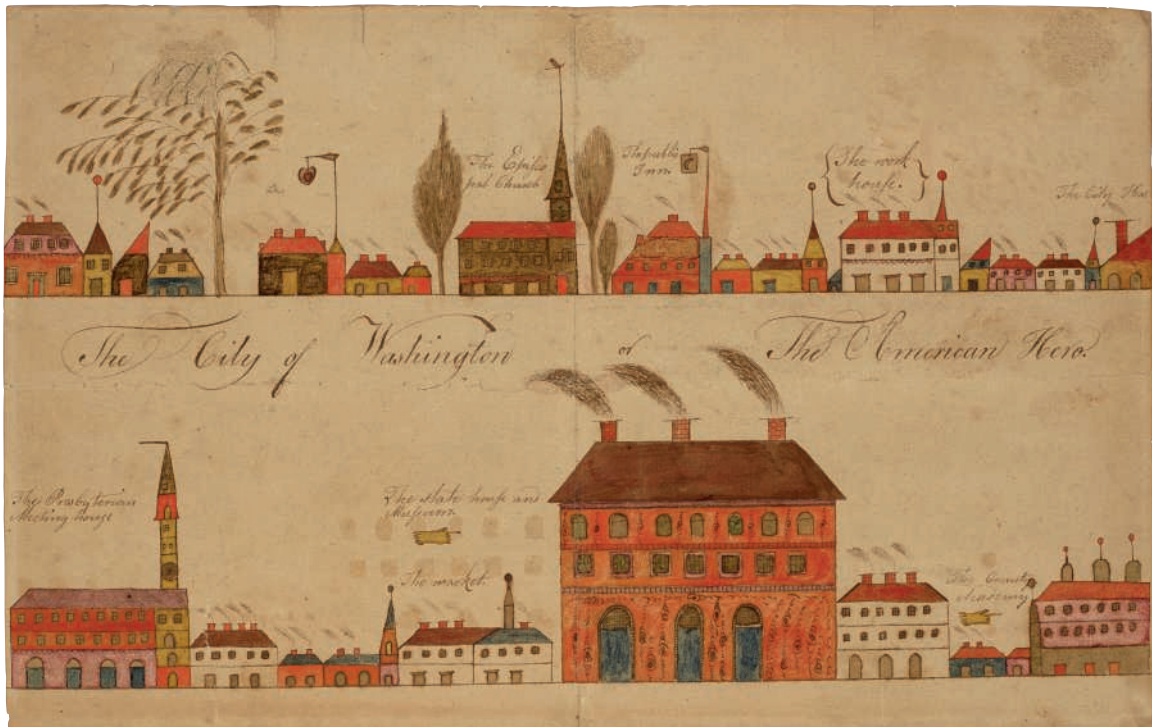 The Episco
pal Church
The public
Inn.
The work
house.
The City
The City of Washington or The American Hero.
The Presbyterian
Meeting house
The state house and
Museum.
The market.
The County
Academy